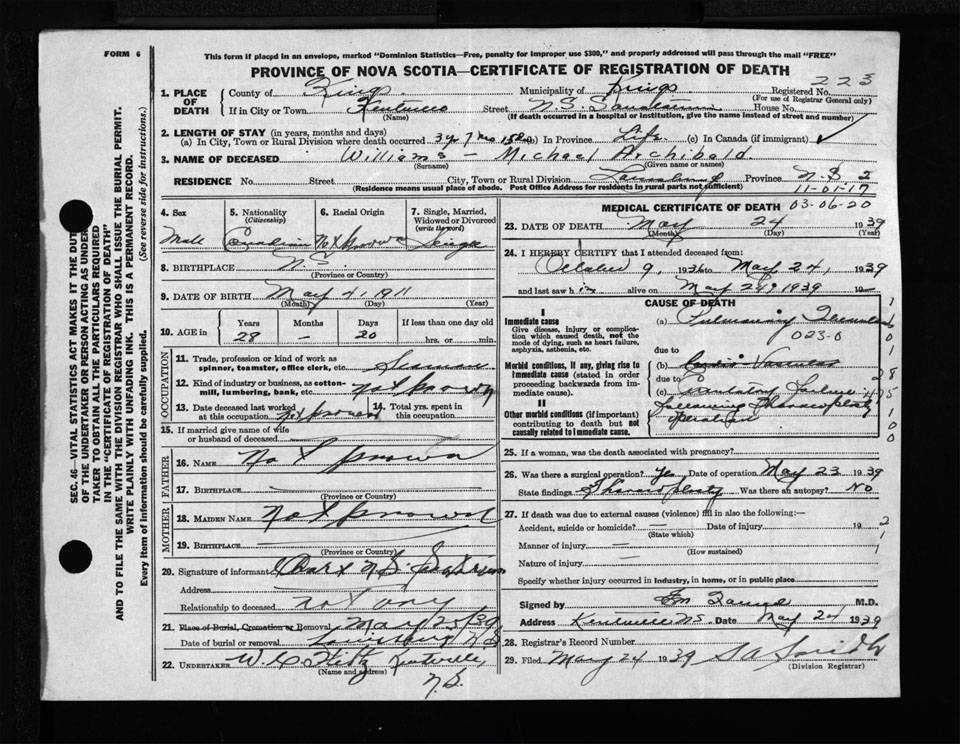 FORM 6
This form if placed in an envelope, marked "Dominion Statistics—Free, penalty for improper use $300," and properly addressed will pass through the mail "FREE"
PROVINCE OF NOVA SCOTIA—CERTIFICATE OF REGISTRATION OF DEATH
223
SEC. 46—VITAL STATISTICS ACT MAKES IT THE DUTY
OF THE UNDERTAKER OR PERSON ACTING AS UNDER-
TAKER TO OBTAIN ALL THE PARTICULARS REQUIRED
IN THE "CERTIFICATE OF REGISTRATION OF DEATH"
AND TO FILE THE SAME WITH THE DIVISION REGISTRAR WHO SHALL ISSUE THE BURIAL PERMIT.
WRITE PLAINLY WITH UNFADING INK. THIS IS A PERMANENT RECORD.
Every item of information should be carefully supplied. (See reverse side for instructions.)
1. PLACE OF DEATH County of Kings Municipality of Kings Registered No.
(For use of Registrar General only)
If in City or Town Kentville Street N.S. Sanatorium House No.
(Name) (If death occurred in a hospital or institution, give the name instead of street and number)
2. LENGTH OF STAY (in years, months and days)
(a) In City, Town or Rural Division where death occurred 3 y 7 mo 15 da (b) In Province Life (c) In Canada (if immigrant)
3. NAME OF DECEASED Williams — Michael Archibald.
(Surname) (Given name or names)
RESIDENCE No. Street City, Town or Rural Division Province N.S. 2
(Residence means usual place of abode. Post Office Address for residents in rural parts not sufficient) 11-01-17
4. Sex Male
5. Nationality (Citizenship) Canadian
6. Racial Origin Not known
7. Single, Married, Widowed or Divorced (write the word) Single
8. BIRTHPLACE N.S.
(Province or Country)
9. DATE OF BIRTH May 4, 1911
(Month) (Day) (Year)
10. AGE in Years Months Days If less than one day old
28 — 20 hrs. or min.
OCCUPATION
11. Trade, profession or kind of work as spinner, teamster, office clerk, etc. Seaman
12. Kind of industry or business, as cotton-mill, lumbering, bank, etc. Not known
13. Date deceased last worked at this occupation Not known 14. Total yrs. spent in this occupation
15. If married give name of wife or husband of deceased
FATHER
16. NAME Not known
17. BIRTHPLACE
(Province or Country)
MOTHER
18. MAIDEN NAME Not known
19. BIRTHPLACE
(Province or Country)
20. Signature of informant Chart N.S. Sanatorium
Address
Relationship to deceased not any
21. Place of Burial, Cremation or Removal May 25/39
Date of burial or removal Louisburg N.S.
22. UNDERTAKER W. C. Kentville,
(Name and address) N.S.
MEDICAL CERTIFICATE OF DEATH 03-06-20
23. DATE OF DEATH May 24 1939
(Month) (Day) (Year)
24. I HEREBY CERTIFY that I attended deceased from:
October 9, 1936 to May 24, 1939
and last saw him alive on May 24, 1939 19
CAUSE OF DEATH
I
Immediate cause
Give disease, injury or complication which caused death, not the mode of dying, such as heart failure, asphyxia, asthenia, etc.
(a) Pulmonary Tuberculosis
023-0
due to
Morbid conditions, if any, giving rise to immediate cause (stated in order proceeding backwards from immediate cause).
(b) Cardio Vascular
due to
(c) Circulatory Failure
II
Other morbid conditions (if important) contributing to death but not causally related to immediate cause.
following Thoracoplasty
operation
25. If a woman, was the death associated with pregnancy?
26. Was there a surgical operation? Yes Date of operation May 23 1939
State findings Thoracoplasty Was there an autopsy? No
27. If death was due to external causes (violence) fill in also the following:—
Accident, suicide or homicide? — Date of injury 19
(State which)
Manner of injury —
(How sustained)
Nature of injury —
Specify whether injury occurred in industry, in home, or in public place
Signed by M.D.
Address Kentville N.S. Date May 24 1939
28. Registrar's Record Number
29. Filed May 24 1939 S A Smith
(Division Registrar)